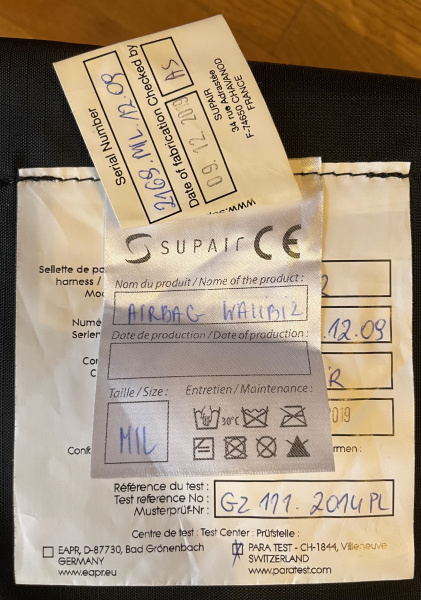 Serial Number
2168.ML.12.09
Date of fabrication Checked by
09.12.20 AS
SUPAIR
34 rue Adrastée
F-74650 CHAVANOD
FRANCE
www.
SUPAIR CE
Nom du produit / Name of the product :
AIRBAG WALLBI2
Date de production / Date of production :
Taille / Size :
Entretien / Maintenance :
M/L
30°C
Sellette de pa
harness /
Mod
2
Numé
Serien
.12.09
Con
C
R
2019
Conf
rmen :
Référence du test :
Test reference No :
Musterprüf-Nr :
GZ 111.2014PL
Centre de test : Test Center : Prüfstelle :
EAPR, D-87730, Bad Grönenbach
GERMANY
www.eapr.eu
PARA TEST - CH-1844, Villeneuve
SWITZERLAND
www.paratest.com